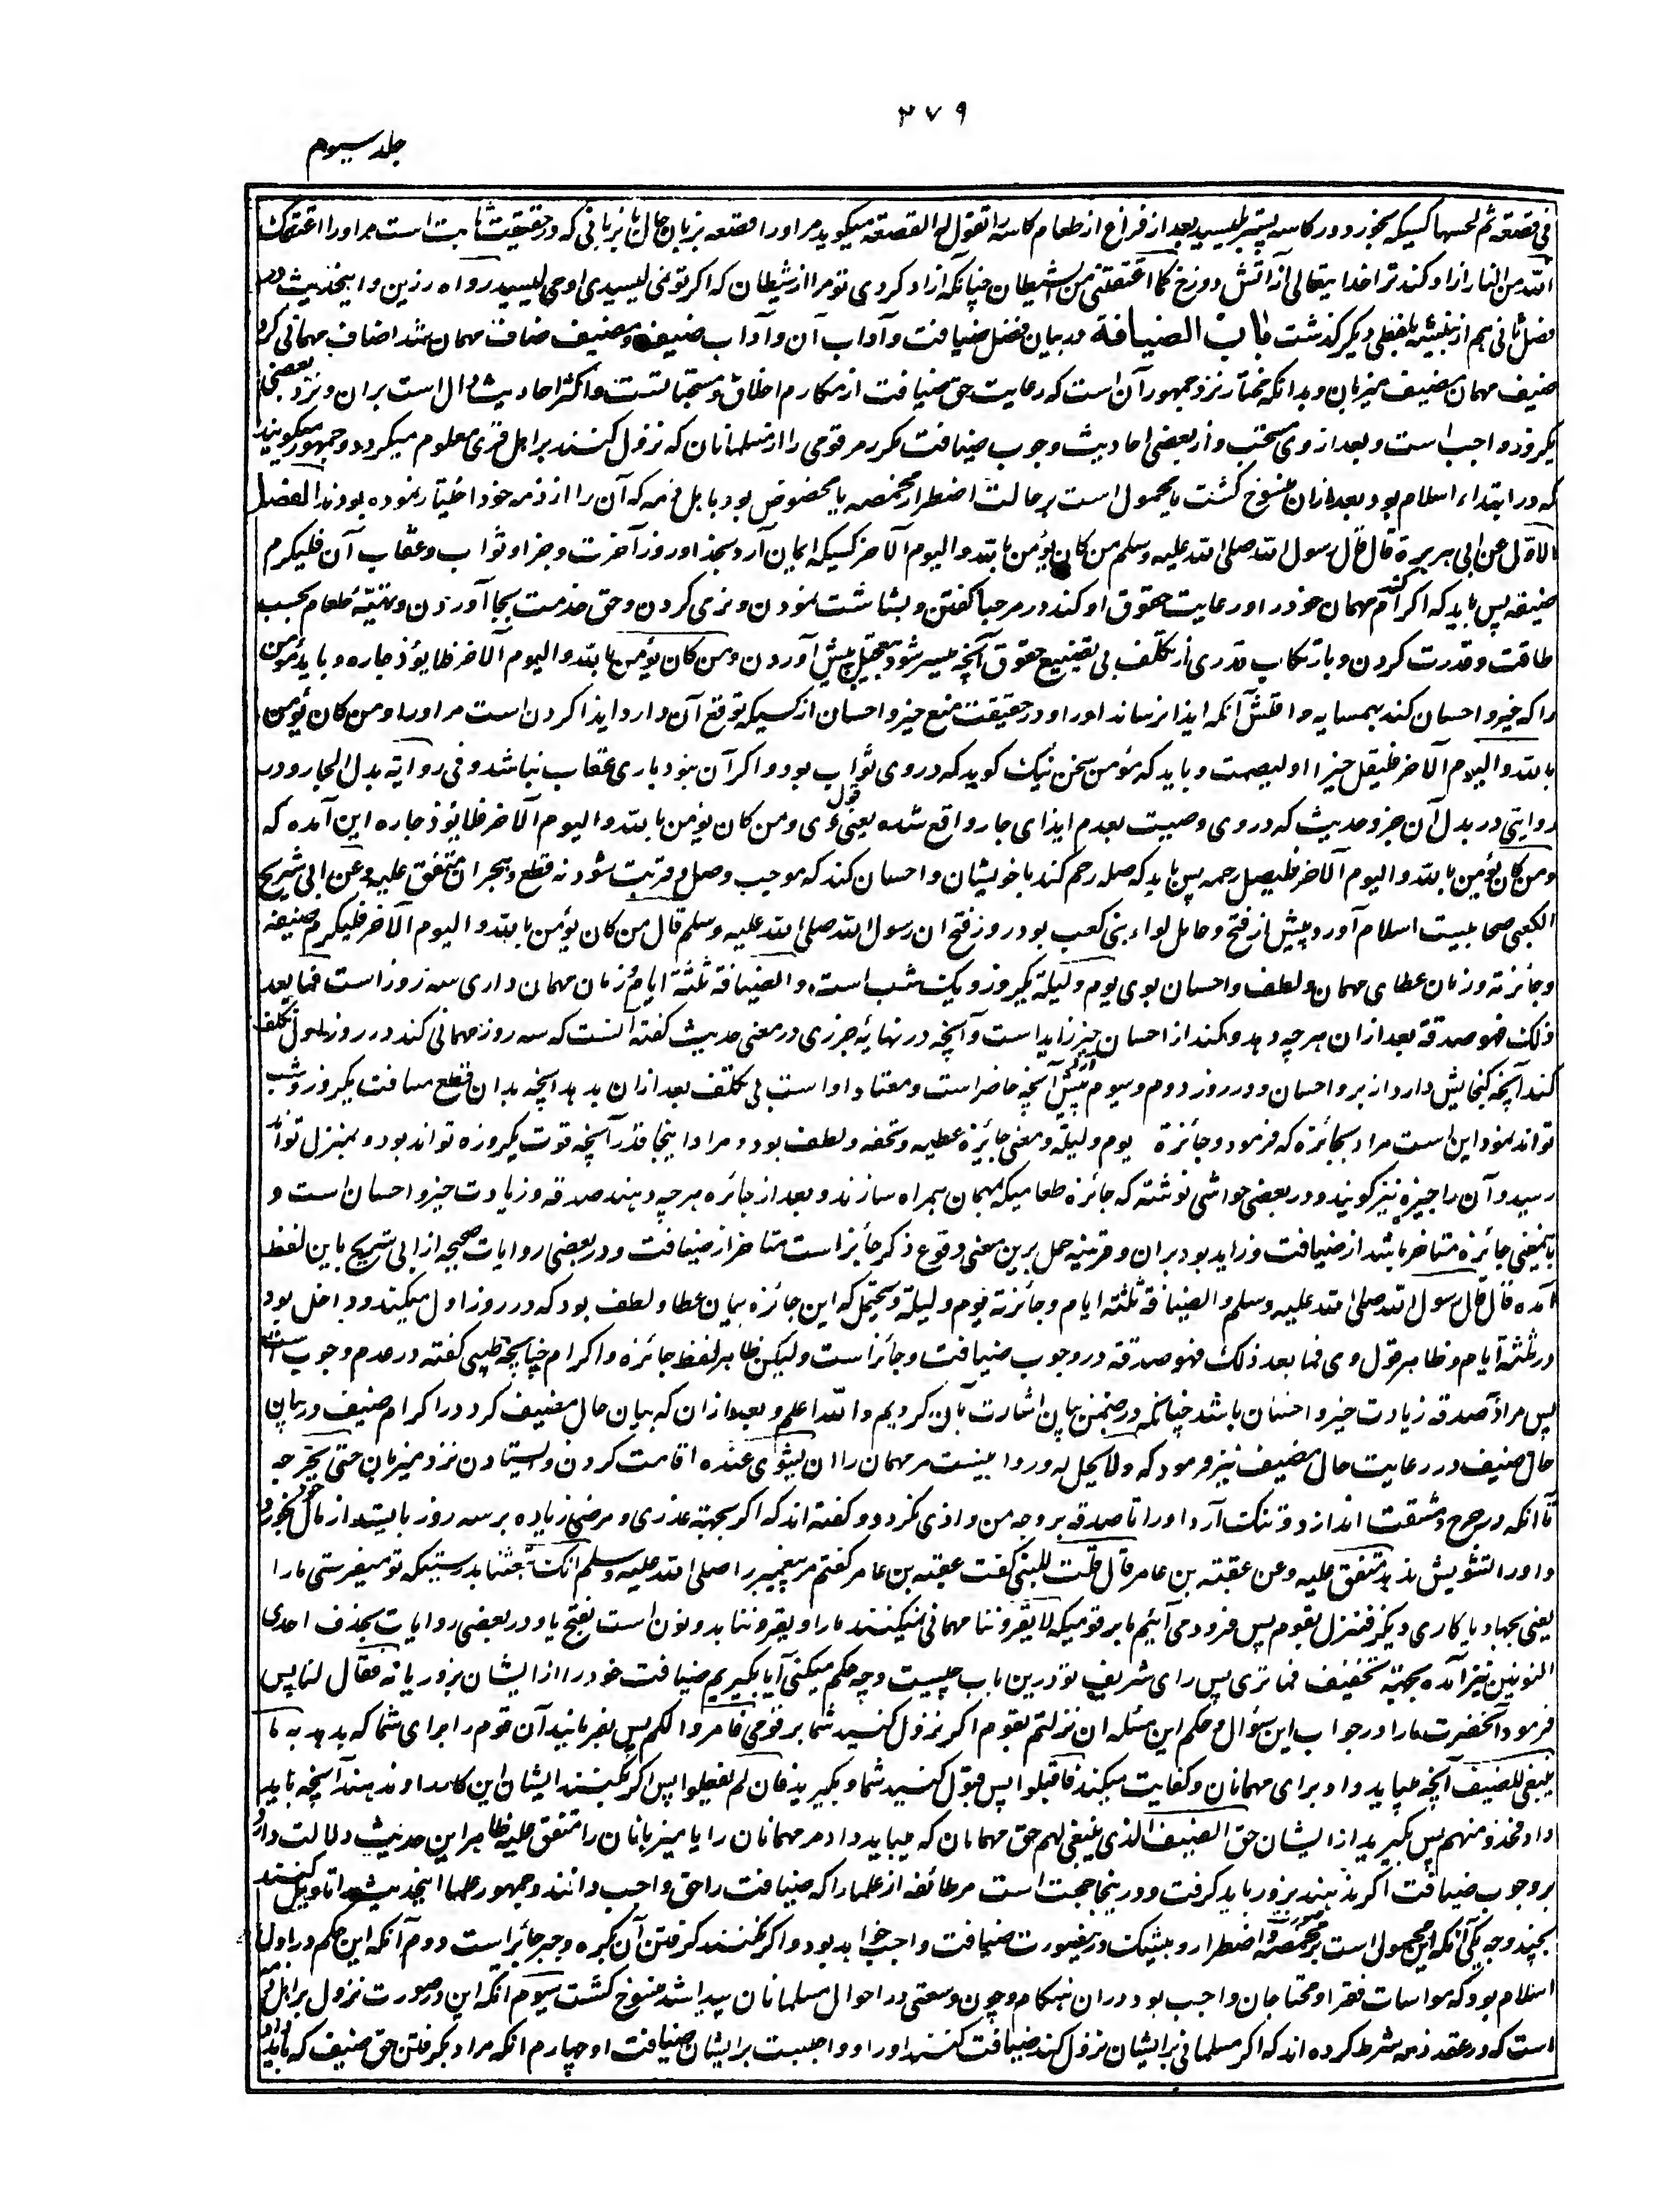 ۳۷۹
جلد سیوم
فی قصعة ثم لحسها کسیکه بخورد در کاسه پستر بلیسد بعد از فراغ از طعام کاسه را تقول له القصعة میگوید مر او را قصعه بزبان حال یا بزبانی که در حقیقت ثابت است مر او را اعتقک
الله من النار ازاد کند ترا خدایتعالی از آتش دوزخ کما اعتقتنی من الشیطان چنانکه ازاد کردی تو مرا از شیطان که اگر تو نمی لیسیدی او می لیسید رواه رزین و اینحدیث در
فصل ثانی هم از نبیشه بلفظی دیگر گذشت باب الضیافة در بیان فضل ضیافت و آداب آن و آداب ضیف و مضیف ضاف مهمان شد اضاف مهمانی کرد
ضیف مهمان مضیف میزبان و بدانکه مختار نزد جمهور آن است که رعایت حق ضیافت از مکارم اخلاق و مستحباتست و اکثر احادیث دال است بران و نزد بعضی
یکروز واجب است و بعد از وی مستحب و از بعضی احادیث وجوب ضیافت مکرر مر قومی را از مسلمانان که نزول کنند بر اهل قری معلوم میگردد و جمهور میگویند
که در ابتداء اسلام بود بعد ازان منسوخ گشت یا محمول است بر حالت اضطرار و مخمصه یا مخصوص بود باهل ذمه که آن را از ذمه خود اختیار نموده بودند الفصل
الاول عن ابی هریرة قال قال رسول الله صلی الله علیه وسلم من کان یؤمن بالله و الیوم الآخر کسیکه ایمان آرد بخدا و روز آخرت و جزا و ثواب و عقاب آن فلیکرم
ضیفه پس باید که اکرام کند مهمان خود را و رعایت حقوق او کند در مرحبا گفتن و بشاشت نمودن و نرمی کردن و حق خدمت بجا آوردن و تهیئه طعام بحسب
طاقت و قدرت کردن و بارتکاب قدری از تکلف بی تضییع حقوق آنچه میسر شود بتعجیل پیش آوردن و من کان یؤمن بالله و الیوم الآخر فلا یؤذ جاره و باید مؤمن
را که خیر و احسان کند بهمسایه و اقلش آنکه ایذا نرساند او را و در حقیقت منع خیر و احسان از کسیکه توقع آن دارد ایذا کردن است مر او را و من کان یؤمن
بالله و الیوم الآخر فلیقل خیرا او لیصمت و باید که مؤمن سخن نیک گوید که در وی ثواب بود و اگر آن نبود باری عقاب نباشد و فی روایة بدل الجار و در
روایتی در بدل آن جزو حدیث که در وی وصیت بعدم ایذای جار واقع شده یعنی قول وی و من کان یؤمن بالله و الیوم الآخر فلا یؤذ جاره این آمده که
و من کان یؤمن بالله و الیوم الآخر فلیصل رحمه پس باید که صله رحم کند با خویشان و احسان کند که موجب وصل و قربت شود نه قطع و هجران متفق علیه و عن ابی شریح
الکعبی صحابیست اسلام آورد پیش از فتح و حامل لواء بنی کعب بود روز فتح ان رسول الله صلی الله علیه وسلم قال من کان یؤمن بالله و الیوم الآخر فلیکرم ضیفه
و جائزته و زمان عطای مهمان و لطف و احسان بوی یوم و لیلة یکروز و یک شب است و الضیافة ثلثة ایام و زمان مهمان داری سه روز است فما بعد
ذلک فهو صدقة بعد ازان هر چه دهد و بکند از احسان خیر زاید است و آنچه در نهایه جزری در معنی حدیث گفته آنست که سه روز مهمانی کند در روز اول تکلف
کند آنچه گنجایش دارد از بر و احسان و در روز دوم و سیوم پیش آرد آنچه حاضر است و معتاد او است بی تکلف بعد ازان بدهد آنچه بدان قطع مسافت یکروز و شب
تواند نمود این است مراد بجائزه که فرمود و جائزة یوم و لیلة و معنی جایزه عطیه و تحفه و لطف بود و مراد اینجا قدر آنچه قوت یکروزه تواند بود و بمنزل تواند
رسید و آن را جیزه نیز گویند و در بعضی حواشی نوشته که جائزه طعامیکه بمهمان همراه سازند و بعد از جائزه هر چه دهند صدقه و زیادت خیر و احسان است و
باینمعنی جائزه متاخر باشد از ضیافت و زاید بود بران و قرینه حمل برین معنی وقوع ذکر جائز است متاخر از ضیافت و در بعضی روایات صحیحه از ابی شریح باین لفظ
آمده قال قال رسول الله صلی الله علیه وسلم و الضیافة ثلثة ایام و جائزته یوم و لیلة و یحتمل که این جائزه بیان عطا و لطف بود که در روز اول میکند و داخل بود
در ثلثه ایام و ظاهر قول وی فما بعد ذلک فهو صدقة در وجوب ضیافت و جائز است و لیکن ظاهر لفظ جائزه و اکرام چنانچه طیبی گفته در عدم وجوب است
پس مراد صدقه زیادت خیر و احسان باشد چنانکه در ضمن بیان اشارت بآن کردیم و الله اعلم و بعد ازان که بیان حال مضیف کرد در اکرام ضیف در بیان
حال ضیف در رعایت حال مضیف نیز فرمود که و لا یحل له و روا نیست مر مهمان را ان یثوی عنده اقامت کردن و ایستادن نزد میزبان حتی یحرجه
تا آنکه در حرج و مشقت اندازد و تنگ آرد او را تا صدقه بر وجه من و اذی نگردد و گفته اند که اگر بجهة عذری و مرضی زیاده بر سه روز بایستد از مال خود بخورد
و او را تشویش ندهد متفق علیه و عن عقبة بن عامر قال قلت للنبی گفت عقبه بن عامر گفتم مر پیغمبر را صلی الله علیه وسلم انک تبعثنا بدرستیکه تو میفرستی ما را
یعنی بجهاد یا کاری دیگر فننزل بقوم پس فرود می آئیم ما بر قومیکه لا یقروننا مهمانی نمیکنند ما را و یقروننا بدو نون است بفتح یا و در بعضی روایات بحذف احدی
النونین نیز آمده بجهة تخفیف فما تری پس رای شریف تو درین باب چیست و چه حکم میکنی آیا بگیریم ضیافت خود را از ایشان بزور یا نه فقال لنا پس
فرمود آنحضرت ما را در جواب این سؤال و حکم این مسئله ان نزلتم بقوم اگر نزول کنید شما بر قومی فامروا لکم پس بفرمایند آن قوم را برای شما که بدهد بما
ینبغی للضیف آنچه میباید داد برای مهمانان و کفایت میکند فاقبلوا پس قبول کنید شما و بگیرید فان لم یفعلوا پس اگر نکنند ایشان این کار را و ندهند آنچه باید
داد فخذوا منهم پس بگیرید از ایشان حق الضیف الذی ینبغی لهم حق مهمانان که میباید داد مر مهمانان را یا میزبانان را متفق علیه ظاهر این حدیث دلالت دارد
بر وجوب ضیافت اگر ندهند بزور باید گرفت و درینجا حجت است مر طائفه از علما را که ضیافت را حق واجب دانند و جمهور علما اینحدیث را تاویل کنند
بچند وجه یکی آنکه این محمول است بر صورت مخمصه و اضطرار و بیشک درینصورت ضیافت واجب خواهد بود و اگر نکنند گرفتن آن بکره و جبر جائز است دوم آنکه این حکم در اول
اسلام بود که مواسات فقرا و محتاجان واجب بود در ان هنگام و چون وسعتی در احوال مسلمانان پیدا شد منسوخ گشت سیوم آنکه این در صورت نزول بر اهل ذمه
است که در عقد ذمه شرط کرده اند که اگر مسلمانی بر ایشان نزول کند ضیافت کنند او را و واجبست بر ایشان ضیافت او چهارم آنکه مراد بگرفتن حق ضیف که باید داد